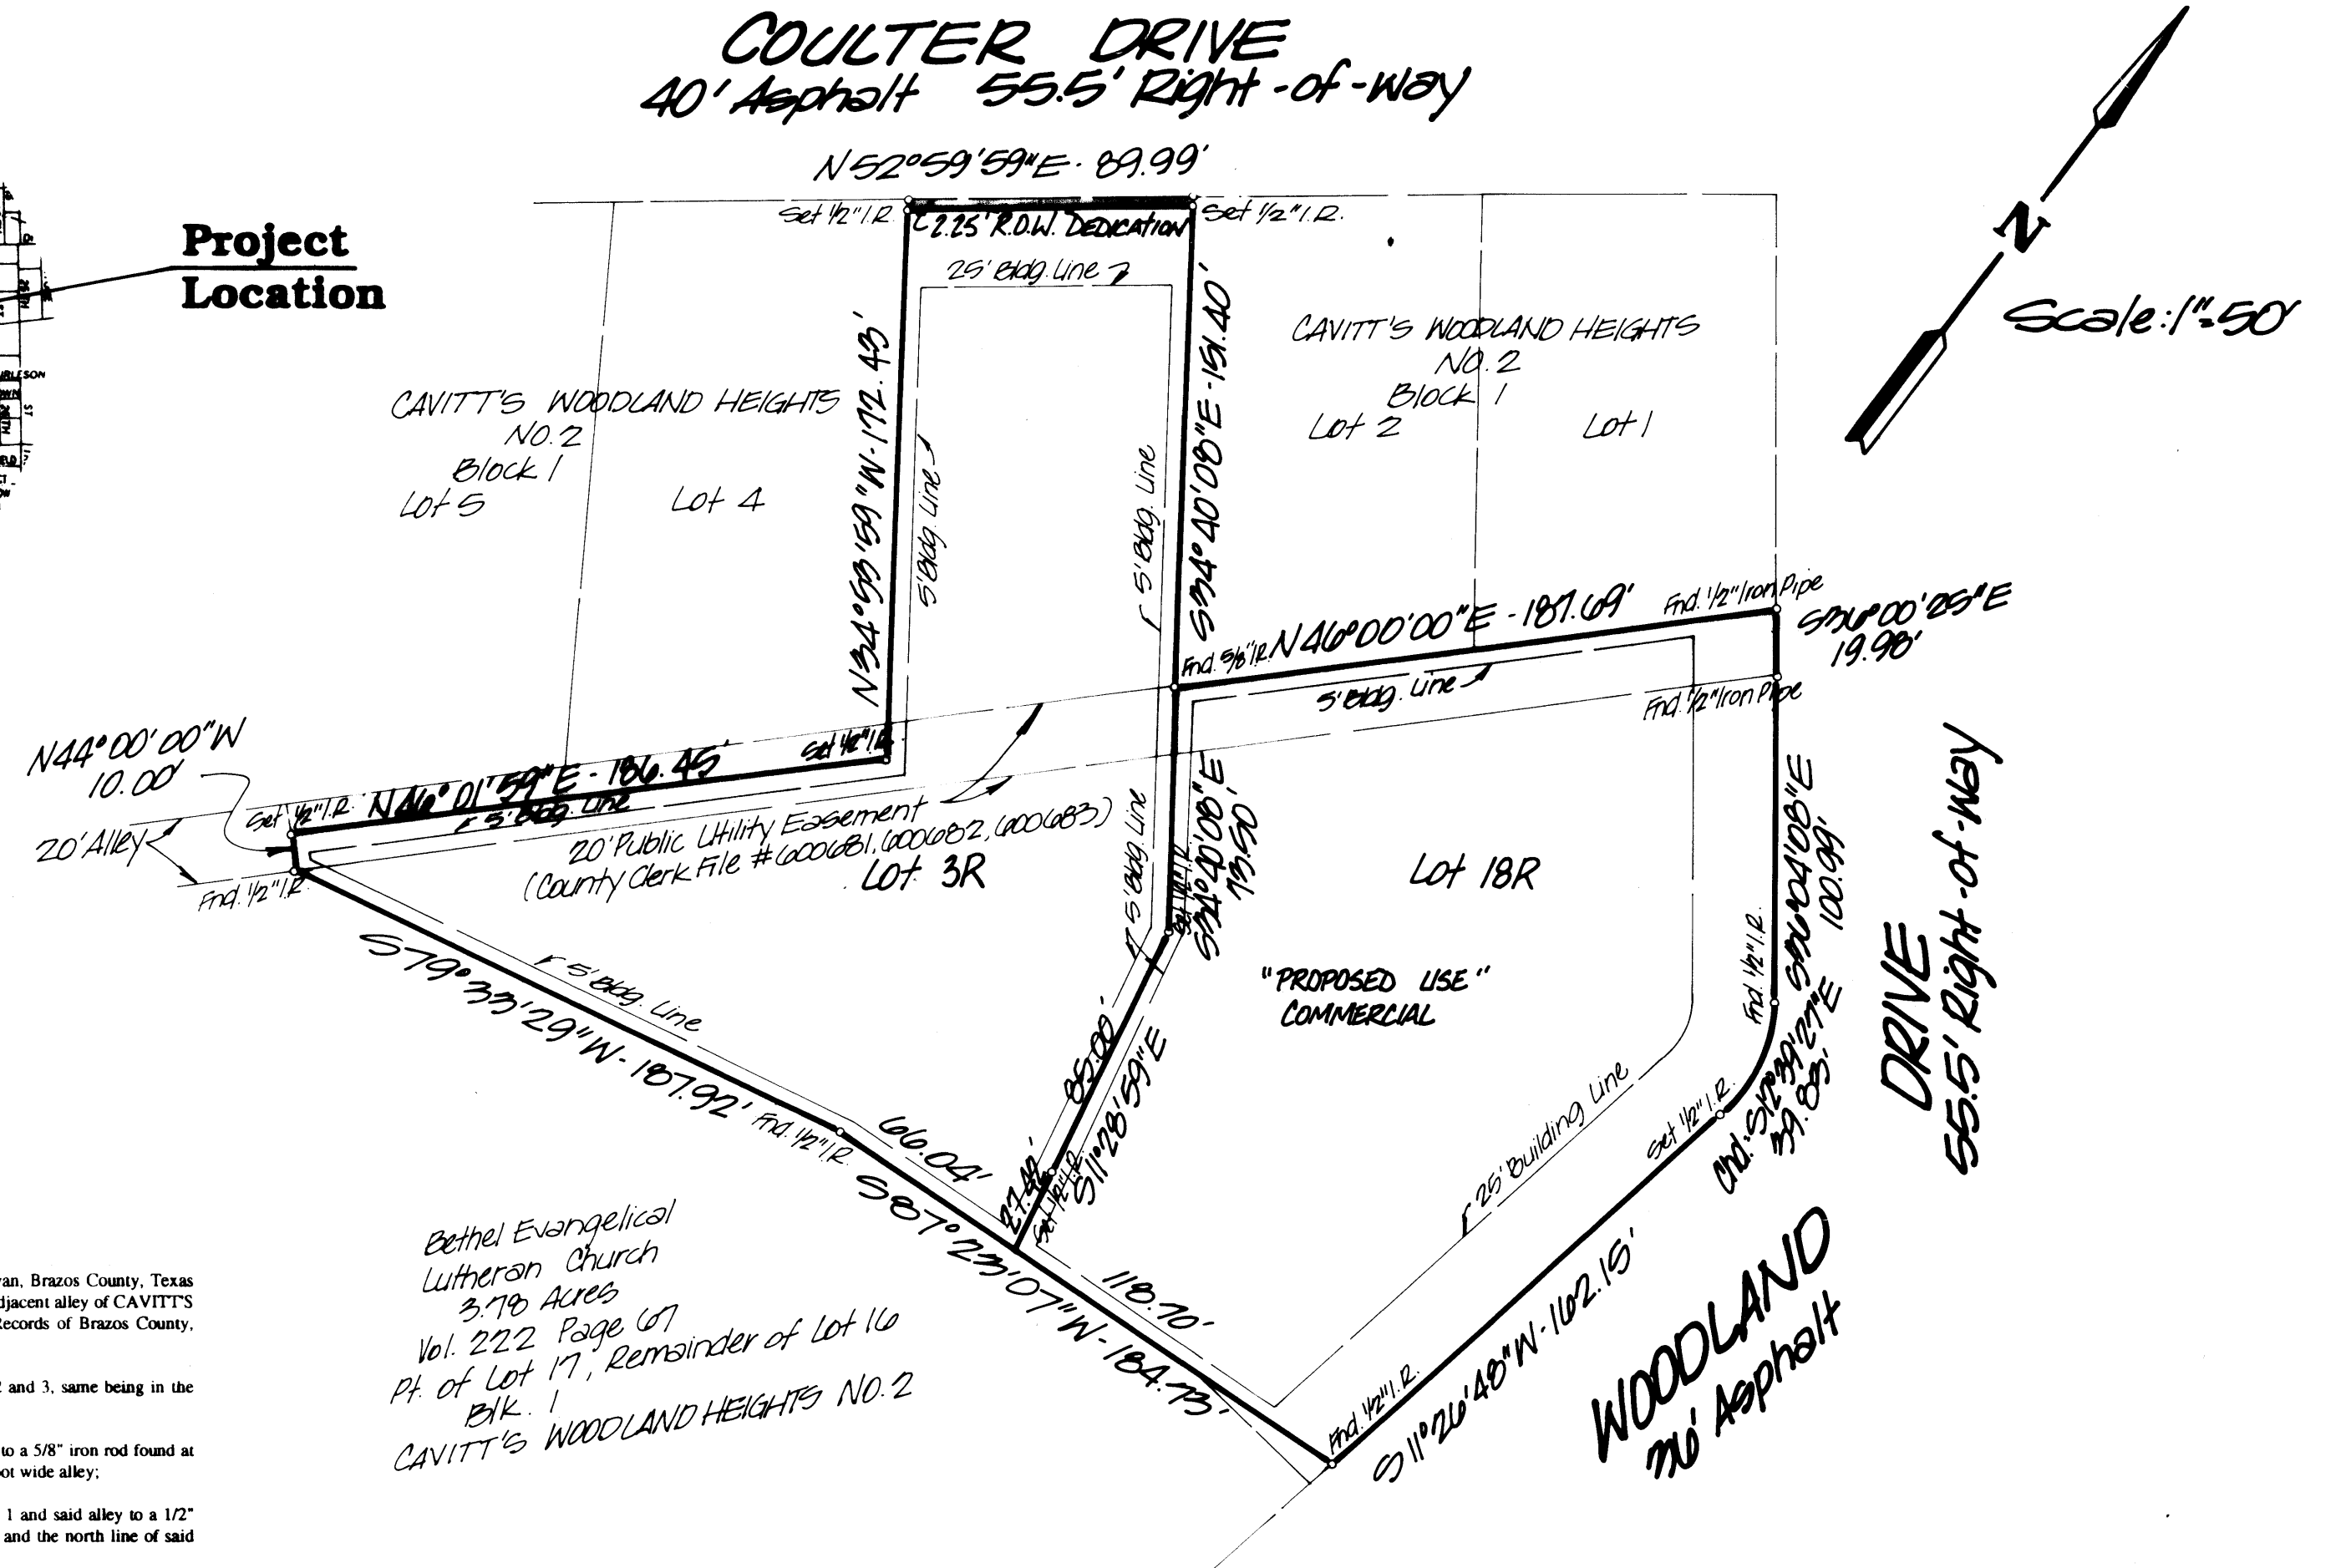 COULTER DRIVE
40' Asphalt 55.5' Right-of-way
N52°59'59"E - 89.99'
Set 1/2" I.R.
2.25' R.O.W. DEDICATION
Set 1/2" I.R.
25' Bldg. Line
N
Scale: 1"=50'
Project
Location
CAVITT'S WOODLAND HEIGHTS
NO. 2
Block 1
Lot 5
Lot 4
N34°53'59"W - 172.43'
5' Bldg. Line
5' Bldg. Line
S34°40'08"E - 151.40'
CAVITT'S WOODLAND HEIGHTS
NO. 2
Block 1
Lot 2
Lot 1
Fnd. 5/8" I.R.
N46°00'00"E - 187.69'
Fnd. 1/2" Iron Pipe
S36°00'25"E
19.98'
5' Bldg. Line
Fnd. 1/2" Iron Pipe
N44°00'00"W
10.00'
20' Alley
Set 1/2" I.R.
N46°01'59"E - 186.45'
Set 1/2" I.R.
5' Bldg. Line
Fnd. 1/2" I.R.
20' Public Utility Easement
(County Clerk File #600681, 600682, 600683)
Lot 3R
5' Bldg. Line
Set 1/2" I.R.
S34°40'08"E
73.50'
Lot 18R
"PROPOSED USE"
COMMERCIAL
Fnd. 1/2" I.R.
S36°04'08"E
100.99'
Chd. = S12°39'27"E
39.83'
Set 1/2" I.R.
DRIVE
55.5' Right-of-way
S79°33'29"W - 187.92'
5' Bldg. Line
Fnd. 1/2" I.R.
66.04'
S87°23'07"W - 184.73'
85.00'
S11°28'59"E
27.42'
Set 1/2" I.R.
118.70'
25' Building Line
Fnd. 1/2" I.R.
S11°26'48"W - 162.15'
WOODLAND
36' Asphalt
Bethel Evangelical
Lutheran Church
3.78 Acres
Vol. 222 Page 67
Pt. of Lot 17, Remainder of Lot 16
Blk. 1
CAVITT'S WOODLAND HEIGHTS NO. 2
van, Brazos County, Texas
djacent alley of CAVITT'S
Records of Brazos County,
and 3, same being in the
to a 5/8" iron rod found at
ot wide alley;
1 and said alley to a 1/2"
and the north line of said